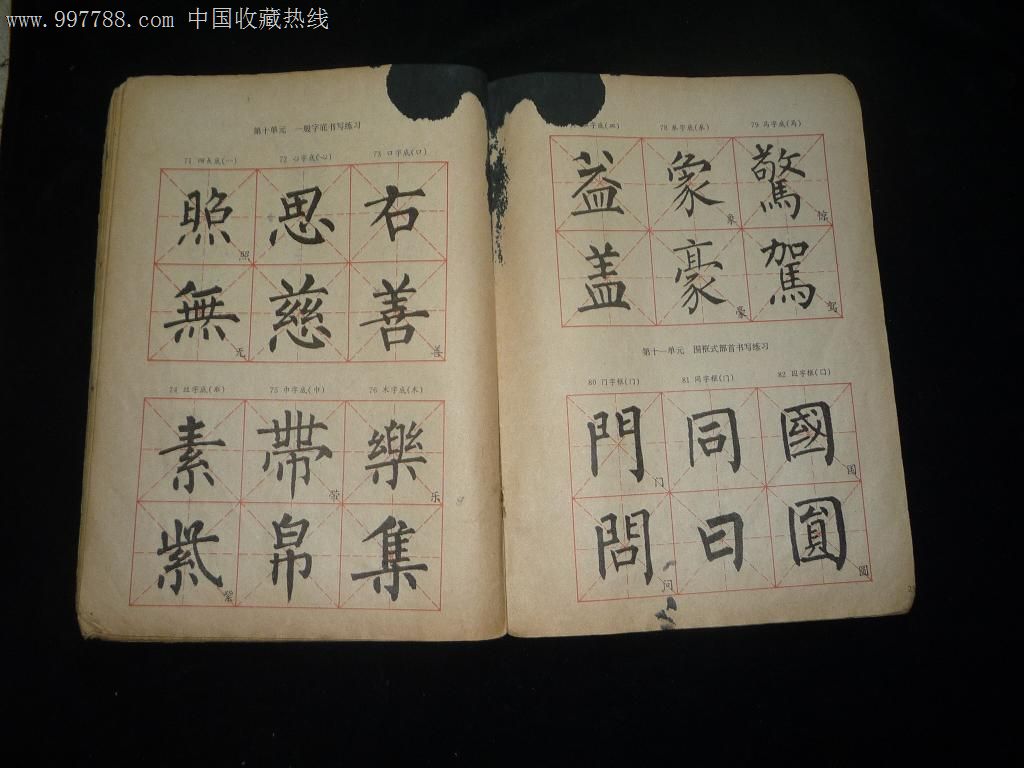 www.997788.com 中国收藏热线
第十单元 一般字底书写练习
71 四点底(灬) 72 心字底(心) 73 口字底(口)
照 思 右
照
無 慈 善
无 善
74 丝字底(糸) 75 巾字底(巾) 76 木字底(木)
素 帶 樂
带 乐
紫 帛 集
紫
字底(皿) 78 (豕) 79 马字底(马)
益 象 驚
象 惊
盖 豪 駕
豪 驾
第十一单元 围框式部首书写练习
80 门字框(门) 81 同字框(冂) 82 国字框(囗)
門 同 國
门 国
問 曰 圓
问 圆